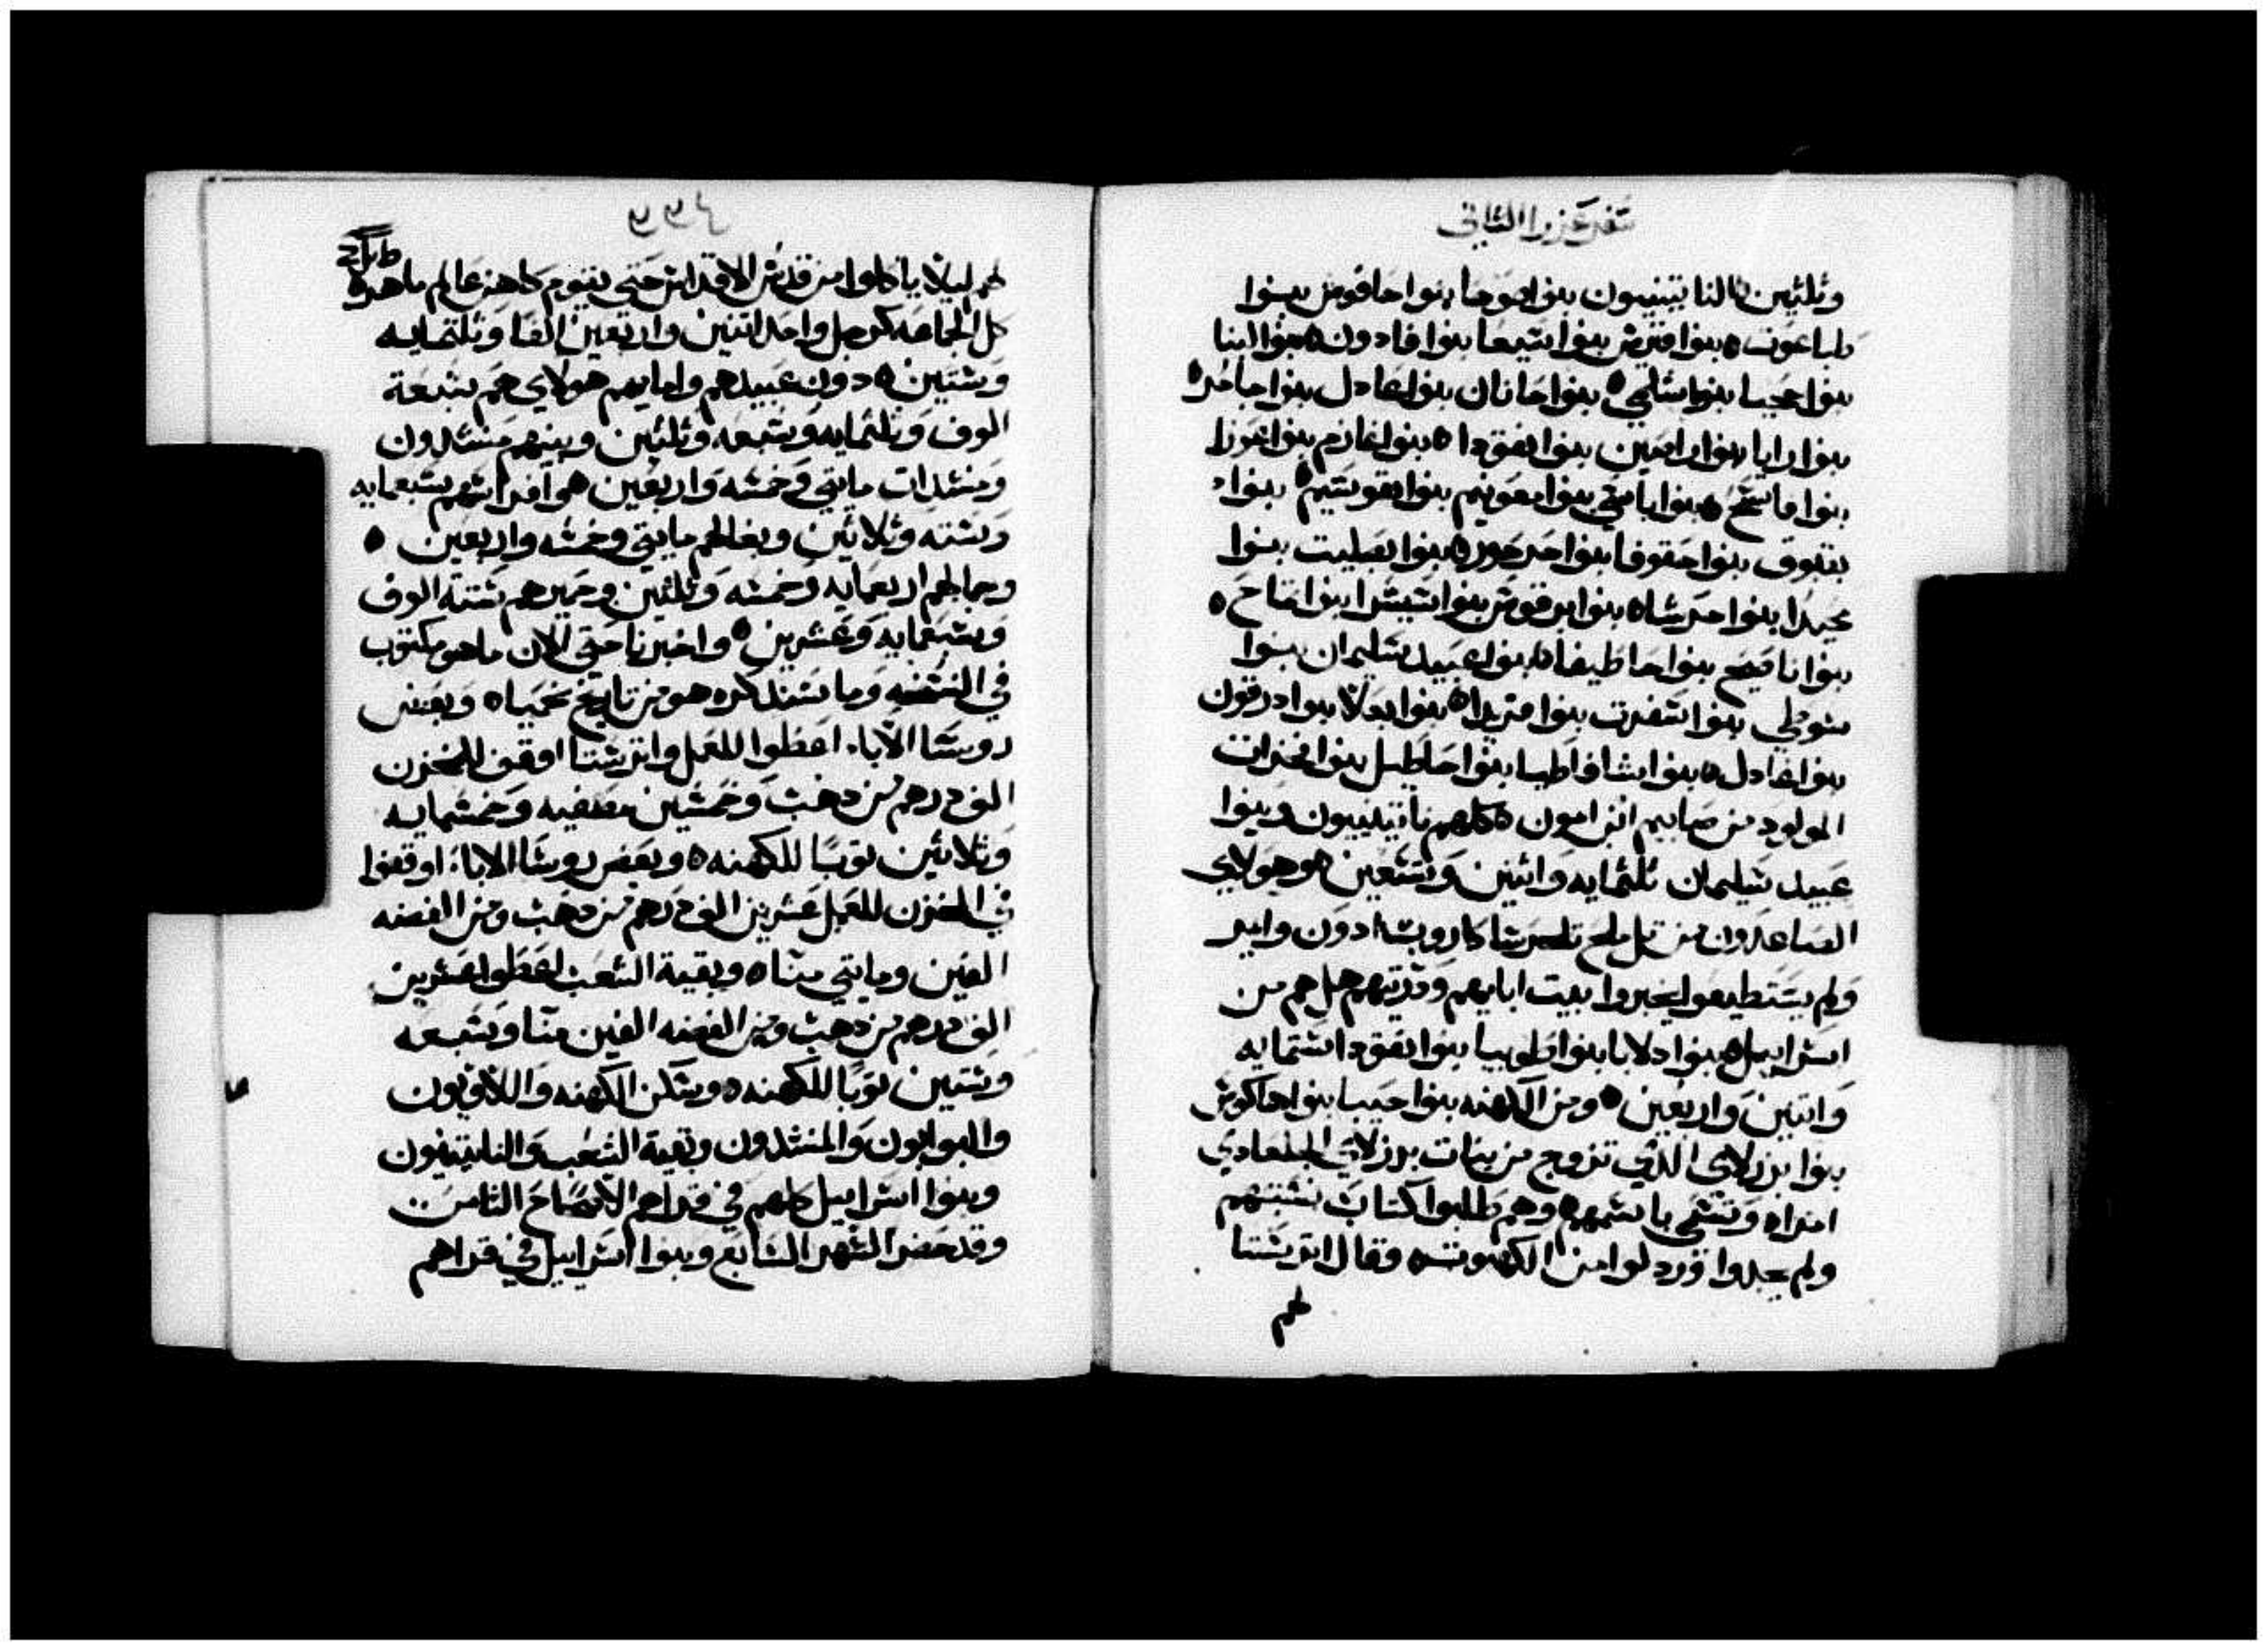 سفر عزرا الثاني
وثلثين النايتينيون بنوا صوحا بنوا حاقوص بنوا
طباعوت ٥ بنوا قيرس بنوا سيعا بنوا فادون ٥ بنوا لابنا
بنوا عجبا بنوا سلمي ٥ بنوا حانان بنوا عادل بنوا جاحر ٥
بنوا رايا بنوا راصين بنوا نقودا ٥ بنوا غازم بنوا عوزا
بنوا فاسح ٥ بنوا باسي بنوا معونيم بنوا نفوسيم ٥ بنوا
بقبوق بنوا حقوفا بنوا حرحور ٥ بنوا بصليت بنوا
محيدا بنوا حرشا ٥ بنوا برقوس بنوا سيسرا بنوا تماح ٥
بنوا ناصيح بنوا حاطيفا ٥ بنوا عبيد سليمان بنوا
سوطي بنوا سفرت بنوا فريدا ٥ بنوا يعلا بنوا درقون
بنوا غادل ٥ بنوا شافاطيا بنوا حاطيل بنوا فخرات
المولود من صابيم ابن امون ٥ كلهم نايتينيون وبنوا
عبيد سليمان ثلثمايه واثنين وتسعين ٥ وهولاي
الصاعدون من تل ملح تلحرشا كاروب ادون وامير
ولم يستطيعوا يخبروا بيت ابايهم وذريتهم هل هم من
اسراييل ٥ بنوا دلايا بنوا طوبيا بنوا نقودا ستمايه
واتنين واربعين ٥ ومن الكهنه بنوا حبيا بنوا هاكوس
بنوا برزلاي الذي تزوج من بنات برزلاي الجلعادي
امراه وتسمي باسمهم ٥ وهم طلبوا كتاب نسبتهم
ولم يجدوا فرذلوا من الكهنوت ٥ وقال اترشتا
لهم
لهم ليلا ياكلوا من قدس الاقداس حتي يقوم كاهن عالم ماهر ٥
كل الجماعه كرجل واحد اتنين واربعين الفا وثلثمايه
وستين ٥ دون عبيدهم وامايهم هولاي هم سبعة
الوف وثلثمايه وسبعه وثلثين وبينهم منشدون
ومنشدات مايتي وخمسه واربعين ٥ وافراسهم سبعمايه
وسته وثلاثين وبغالهم مايتي وخمسه واربعين ٥
وجمالهم اربعمايه وخمسه وثلثين وحميرهم ستة الوف
وسبعمايه وعشرين ٥ واخبرنا حتي الان ما هو مكتوب
في النسخه وما سنذكره هو من تاريخ نحميا ٥ وبعض
روسا الاباء اعطوا للعمل واترشتا اوقف للمخزن
الف درهم من ذهب وخمسين مصفيه وخمسمايه
وثلاثين توبا للكهنه ٥ وبعض روسا الاباء اوقفوا
في المخزن للعمل عشرين الف درهم من ذهب ومن الفضه
الفين ومايتي منا ٥ وبقية الشعب اعطوا عشرين
الف درهم من ذهب ومن الفضه الفين منا وسبعه
وستين توبا للكهنه ٥ وسكن الكهنه واللاويون
والبوابون والمنشدون وبقية الشعب والنايتينيون
وبنوا اسراييل كلهم في قراهم الاصحاح الثامن
وقد حضر الشهر السابع وبنوا اسراييل في قراهم